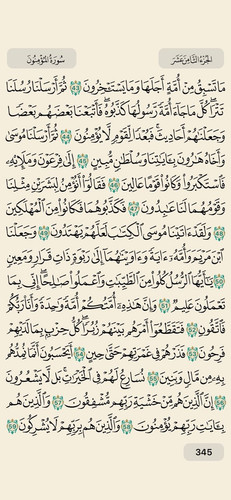 الجزء الثامن عشر
سورة المؤمنون
مَا تَسْبِقُ مِنْ أُمَّةٍ أَجَلَهَا وَمَا يَسْتَـْٔخِرُونَ ٤٣ ثُمَّ أَرْسَلْنَا رُسُلَنَا
تَتْرَا كُلَّ مَا جَاءَ أُمَّةً رَّسُولُهَا كَذَّبُوهُ فَأَتْبَعْنَا بَعْضَهُم بَعْضًا
وَجَعَلْنَاهُمْ أَحَادِيثَ فَبُعْدًا لِّقَوْمٍ لَّا يُؤْمِنُونَ ٤٤ ثُمَّ أَرْسَلْنَا مُوسَىٰ
وَأَخَاهُ هَارُونَ بِـَٔايَاتِنَا وَسُلْطَانٍ مُّبِينٍ ٤٥ إِلَىٰ فِرْعَوْنَ وَمَلَإِيْهِ
فَاسْتَكْبَرُوا وَكَانُوا قَوْمًا عَالِينَ ٤٦ فَقَالُوا أَنُؤْمِنُ لِبَشَرَيْنِ مِثْلِنَا
وَقَوْمُهُمَا لَنَا عَابِدُونَ ٤٧ فَكَذَّبُوهُمَا فَكَانُوا مِنَ الْمُهْلَكِينَ
٤٨ وَلَقَدْ ءَاتَيْنَا مُوسَى الْكِتَابَ لَعَلَّهُمْ يَهْتَدُونَ ٤٩ وَجَعَلْنَا
ابْنَ مَرْيَمَ وَأُمَّهُ ءَايَةً وَءَاوَيْنَاهُمَا إِلَىٰ رَبْوَةٍ ذَاتِ قَرَارٍ وَمَعِينٍ
٥٠ يَـٰٓأَيُّهَا الرُّسُلُ كُلُوا مِنَ الطَّيِّبَاتِ وَاعْمَلُوا صَالِحًا إِنِّي بِمَا
تَعْمَلُونَ عَلِيمٌ ٥١ وَإِنَّ هَـٰذِهِ أُمَّتُكُمْ أُمَّةً وَاحِدَةً وَأَنَا رَبُّكُمْ
فَاتَّقُونِ ٥٢ فَتَقَطَّعُوا أَمْرَهُم بَيْنَهُمْ زُبُرًا كُلُّ حِزْبٍ بِمَا لَدَيْهِمْ
فَرِحُونَ ٥٣ فَذَرْهُمْ فِي غَمْرَتِهِمْ حَتَّىٰ حِينٍ ٥٤ أَيَحْسَبُونَ أَنَّمَا نُمِدُّهُم
بِهِ مِن مَّالٍ وَبَنِينَ ٥٥ نُسَارِعُ لَهُمْ فِي الْخَيْرَاتِ بَل لَّا يَشْعُرُونَ
٥٦ إِنَّ الَّذِينَ هُم مِّنْ خَشْيَةِ رَبِّهِم مُّشْفِقُونَ ٥٧ وَالَّذِينَ هُم
بِـَٔايَاتِ رَبِّهِمْ يُؤْمِنُونَ ٥٨ وَالَّذِينَ هُم بِرَبِّهِمْ لَا يُشْرِكُونَ ٥٩
345